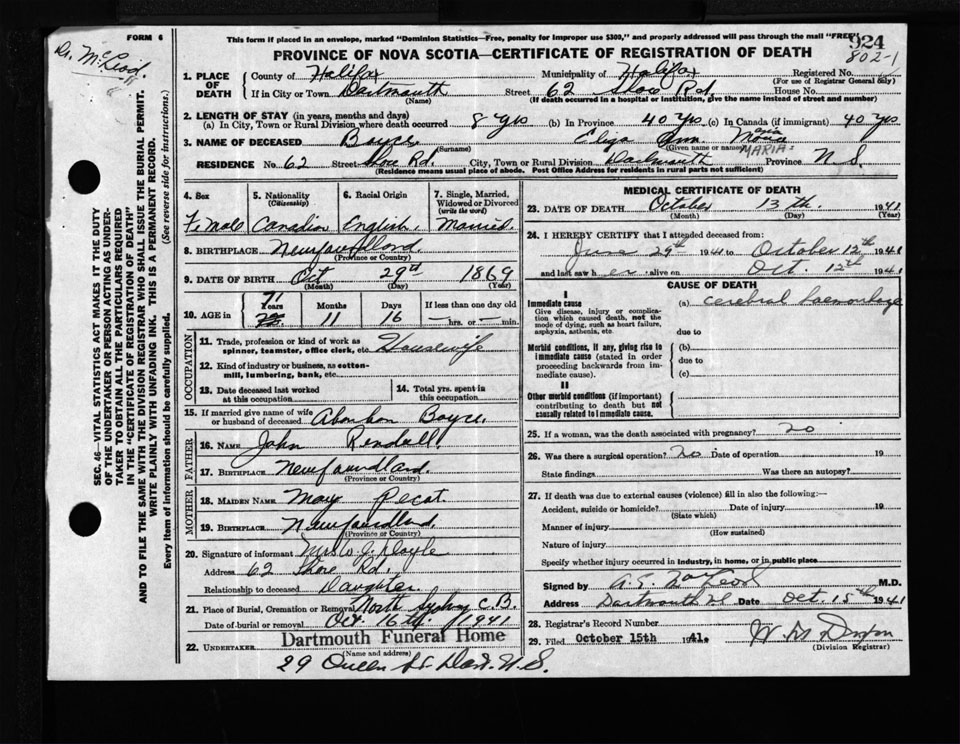 Dr. McLeod.
FORM 6
This form if placed in an envelope, marked "Dominion Statistics—Free, penalty for improper use $300," and properly addressed will pass through the mail "FREE"
924
802-1
PROVINCE OF NOVA SCOTIA—CERTIFICATE OF REGISTRATION OF DEATH
1. PLACE OF DEATH County of Halifax Municipality of Halifax Registered No.
(For use of Registrar General only)
If in City or Town Dartmouth Street 62 Shore Rd. House No.
(Name) (If death occurred in a hospital or institution, give the name instead of street and number)
2. LENGTH OF STAY (in years, months and days)
(a) In City, Town or Rural Division where death occurred 8 yrs (b) In Province 40 yrs (c) In Canada (if immigrant) 40 yrs
3. NAME OF DECEASED Boyce Eliza Ann Maria
(Surname) (Given name or names) MARIA
RESIDENCE No. 62 Street Shore Rd. City, Town or Rural Division Dartmouth Province N S.
(Residence means usual place of abode. Post Office Address for residents in rural parts not sufficient)
4. Sex 5. Nationality (Citizenship) 6. Racial Origin 7. Single, Married, Widowed or Divorced (write the word)
Female Canadian English. Married.
8. BIRTHPLACE Newfoundland
(Province or Country)
9. DATE OF BIRTH Oct 29th 1869
(Month) (Day) (Year)
10. AGE in Years Months Days If less than one day old
71 11 16 hrs. or min.
OCCUPATION
11. Trade, profession or kind of work as spinner, teamster, office clerk, etc. Housewife
12. Kind of industry or business, as cotton-mill, lumbering, bank, etc.
13. Date deceased last worked at this occupation
14. Total yrs. spent in this occupation
15. If married give name of wife or husband of deceased Boyce.
FATHER
16. NAME John Rendell
17. BIRTHPLACE Newfoundland.
(Province or Country)
MOTHER
18. MAIDEN NAME May Pecat.
19. BIRTHPLACE Newfoundland.
(Province or Country)
20. Signature of informant Mrs W. J. Doyle
Address 62 Shore Rd.
Relationship to deceased Daughter
21. Place of Burial, Cremation or Removal North Sydney C.B.
Date of burial or removal Oct. 16th. 1941
22. UNDERTAKER Dartmouth Funeral Home
(Name and address)
29 Queen St. Dart. N.S.
MEDICAL CERTIFICATE OF DEATH
23. DATE OF DEATH October 13th. 1941
(Month) (Day) (Year)
24. I HEREBY CERTIFY that I attended deceased from:
June 29th 1941 to October 12th 1941
and last saw her alive on Oct. 12th 1941
CAUSE OF DEATH
I
Immediate cause (a) cerebral haemorrhage
Give disease, injury or complication which caused death, not the mode of dying, such as heart failure, asphyxia, asthenia, etc.
due to
Morbid conditions, if any, giving rise to immediate cause (stated in order proceeding backwards from immediate cause).
(b)
due to
(c)
II
Other morbid conditions (if important) contributing to death but not causally related to immediate cause.
25. If a woman, was the death associated with pregnancy? no
26. Was there a surgical operation? no Date of operation 19
State findings Was there an autopsy?
27. If death was due to external causes (violence) fill in also the following:—
Accident, suicide or homicide? Date of injury 19
(State which)
Manner of injury
(How sustained)
Nature of injury
Specify whether injury occurred in industry, in home, or in public place
Signed by A. E. McLeod M.D.
Address Dartmouth Date Oct. 15th 1941
28. Registrar's Record Number
29. Filed October 15th 1941.
(Division Registrar)
SEC. 46—VITAL STATISTICS ACT MAKES IT THE DUTY
OF THE UNDERTAKER OR PERSON ACTING AS UNDER-
TAKER TO OBTAIN ALL THE PARTICULARS REQUIRED
IN THE "CERTIFICATE OF REGISTRATION OF DEATH"
AND TO FILE THE SAME WITH THE DIVISION REGISTRAR WHO SHALL ISSUE THE BURIAL PERMIT.
WRITE PLAINLY WITH UNFADING INK. THIS IS A PERMANENT RECORD.
Every item of information should be carefully supplied. (See reverse side for instructions.)